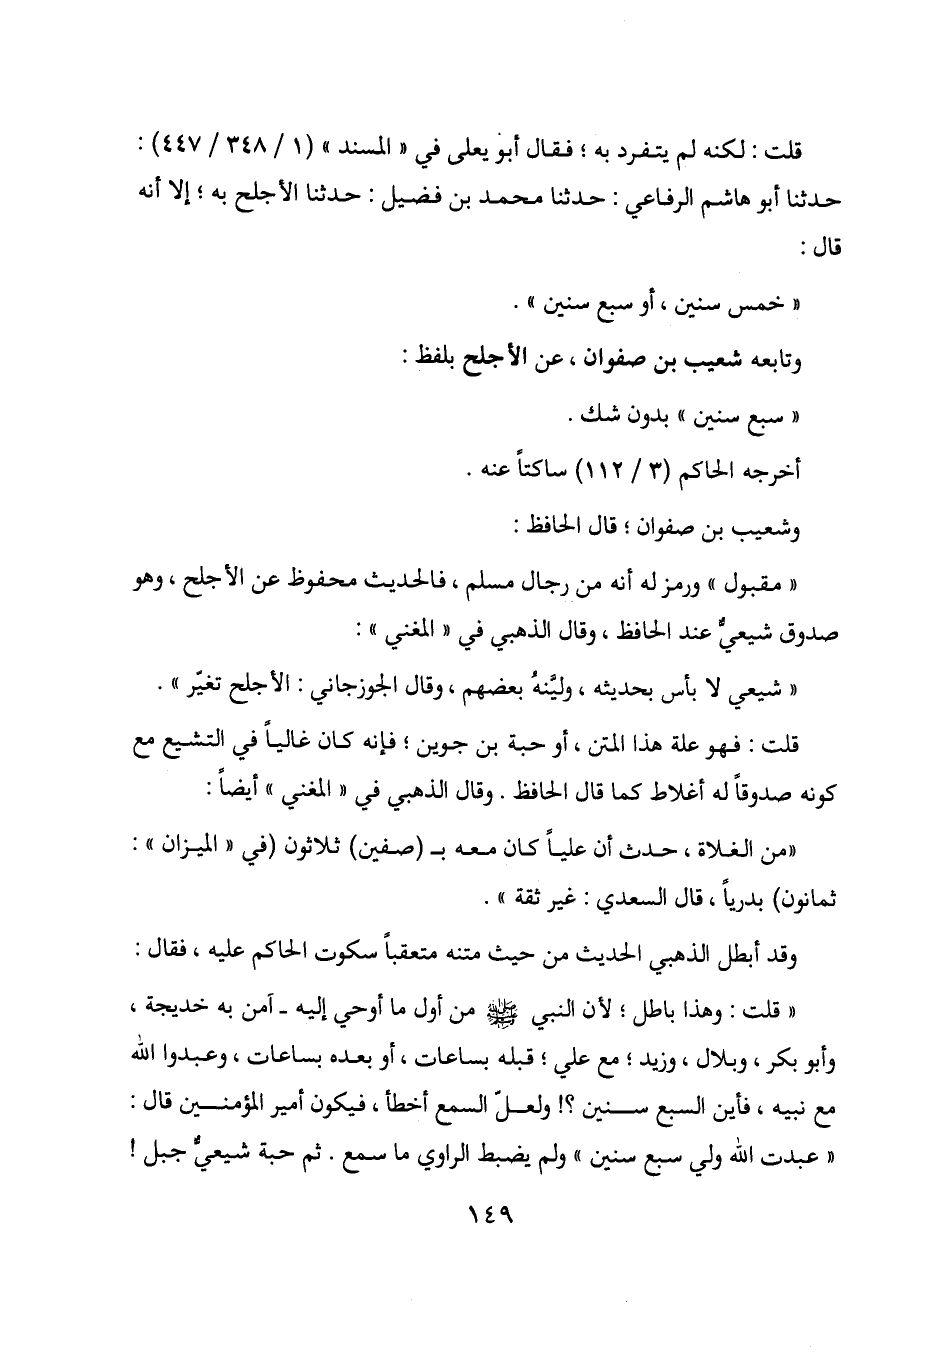 قلت : لكنه لم يتفرد به ؛ فقال أبو يعلى في « المسند » (١ / ٣٤٨ / ٤٤٧) :
حدثنا أبو هاشم الرفاعي : حدثنا محمد بن فضيل : حدثنا الأجلح به ؛ إلا أنه
قال :
« خمس سنين ، أو سبع سنين » .
وتابعه شعيب بن صفوان ، عن الأجلح بلفظ :
« سبع سنين » بدون شك .
أخرجه الحاكم (٣ / ١١٢) ساكتاً عنه .
وشعيب بن صفوان ؛ قال الحافظ :
« مقبول » ورمز له أنه من رجال مسلم ، فالحديث محفوظ عن الأجلح ، وهو
صدوق شيعيٌّ عند الحافظ ، وقال الذهبي في « المغني » :
« شيعي لا بأس بحديثه ، وليَّنهُ بعضهم ، وقال الجوزجاني : الأجلح تغيّر » .
قلت : فهو علة هذا المتن ، أو حبة بن جوين ؛ فإنه كان غالياً في التشيع مع
كونه صدوقاً له أغلاط كما قال الحافظ . وقال الذهبي في « المغني » أيضاً :
«من الغلاة ، حدث أن علياً كان معه بـ (صفين) ثلاثون (في « الميزان » :
ثمانون) بدرياً ، قال السعدي : غير ثقة » .
وقد أبطل الذهبي الحديث من حيث متنه متعقباً سكوت الحاكم عليه ، فقال :
« قلت : وهذا باطل ؛ لأن النبي ﷺ من أول ما أوحي إليه ـ آمن به خديجة ،
وأبو بكر ، وبلال ، وزيد ؛ مع علي ؛ قبله بساعات ، أو بعده بساعات ، وعبدوا الله
مع نبيه ، فأين السبع سنين ؟! ولعلّ السمع أخطأ ، فيكون أمير المؤمنين قال :
« عبدت الله ولي سبع سنين » ولم يضبط الراوي ما سمع . ثم حبة شيعيٌّ جبل !
١٤٩